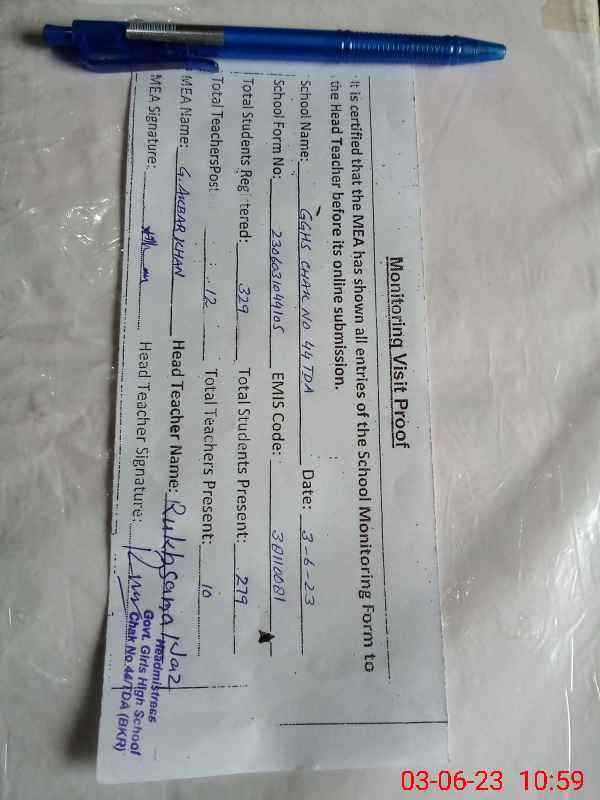 Monitoring Visit Proof
It is certified that the MEA has shown all entries of the School Monitoring Form to
the Head Teacher before its online submission.
School Name: GGHS CHAK NO 44 TDA Date: 3-6-23
School Form No: 2306031044105 EMIS Code: 38110081
Total Students Registered: 329 Total Students Present: 279
Total TeachersPost 12 Total Teachers Present: 10
MEA Name: G. AKBAR KHAN Head Teacher Name: Rukhsana Naz
MEA Signature: Head Teacher Signature:
Headmistress
Govt. Girls High School
Chak No.44/TDA (BKR)
03-06-23 10:59